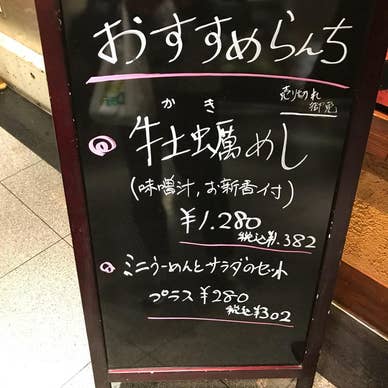 おすすめらんち
売り切れ
御免
かき
牡蠣めし
(味噌汁,お新香付)
¥1.280
税込¥1.382
ミニらーめんとサラダのセット
プラス ¥280
税込¥302